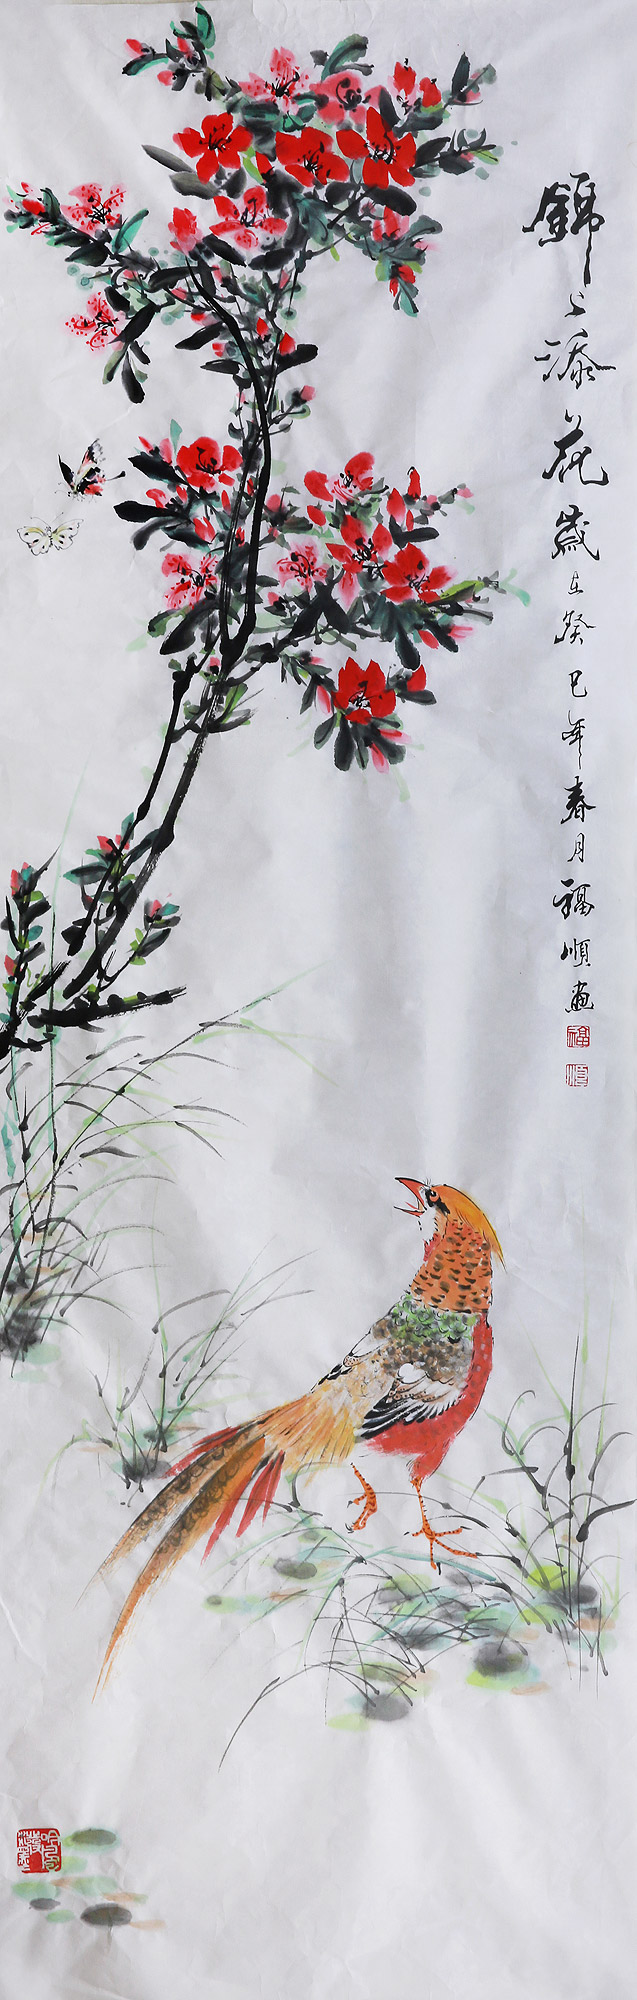 錦上添花歲在癸巳年春月福順畫
福
順